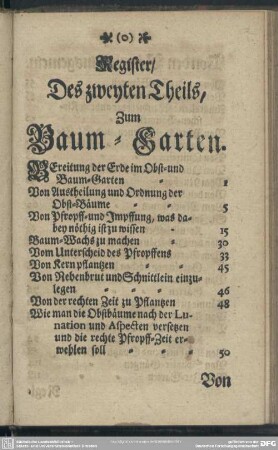 (o)
Register/
Des zweyten Theils,
Zum
Baum-Garten.
BEreitung der Erde im Obst-und
Baum-Garten - 1
Von Austheilung und Ordnung der
Obst-Bäume - - 5
Von Pfropff-und Impffung, was da-
bey nöthig ist zu wissen - 15
Baum-Wachs zu machen - 30
Vom Unterscheid des Pfropffens 33
Von Kern pflantzen - - 45
Von Nebenbrut und Schnittlein einzu-
legen - - - 46
Von der rechten Zeit zu Pflantzen 48
Wie man die Obstbäume nach der Lu-
nation und Aspecten versetzen
und die rechte Pfropff-Zeit er-
wehlen soll - - 50
Von